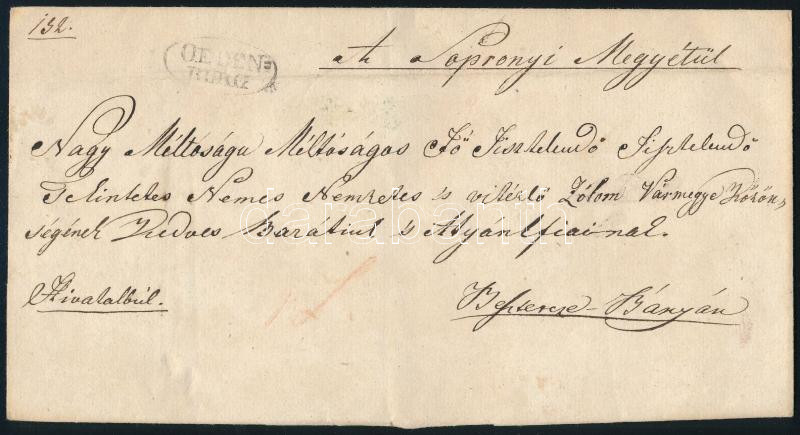 132.
OEDEN
BURG
A' Sopronyi Megyétül
Nagy Méltóságu Méltóságos Fő Tisztelendő Tisztelendő
Tekintetes Nemes Nemzetes és vitézlő Zólom Vármegye Közön,,
ségének Kedves Barátink s Atyánkfiainak.
Hivatalbúl.
Besztercze-Bányán
darabanth